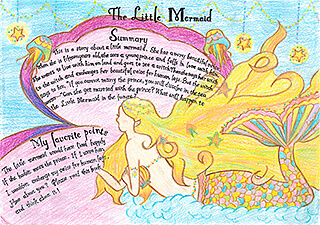 The Little Mermaid
Summary
This is a story about a little mermaid. She has a very beautiful voice.
When she is fifteen years old, she sees a young prince and falls in love with him.
She wants to live with him on land and goes to see a witch. She
to the witch and exchanges her beautiful voice for human legs. But the witch
says to her, if you cannot marry the prince, you will dissolve in the sea
Can she get married with the prince? What will happen to
the Little Mermaid in the future?
My favorite points
The little mermaid would have lived happily
if she hadn't met the prince. If I were her,
I wouldn't exchange my voice for human legs.
How about you? Please read this book
and think about it!